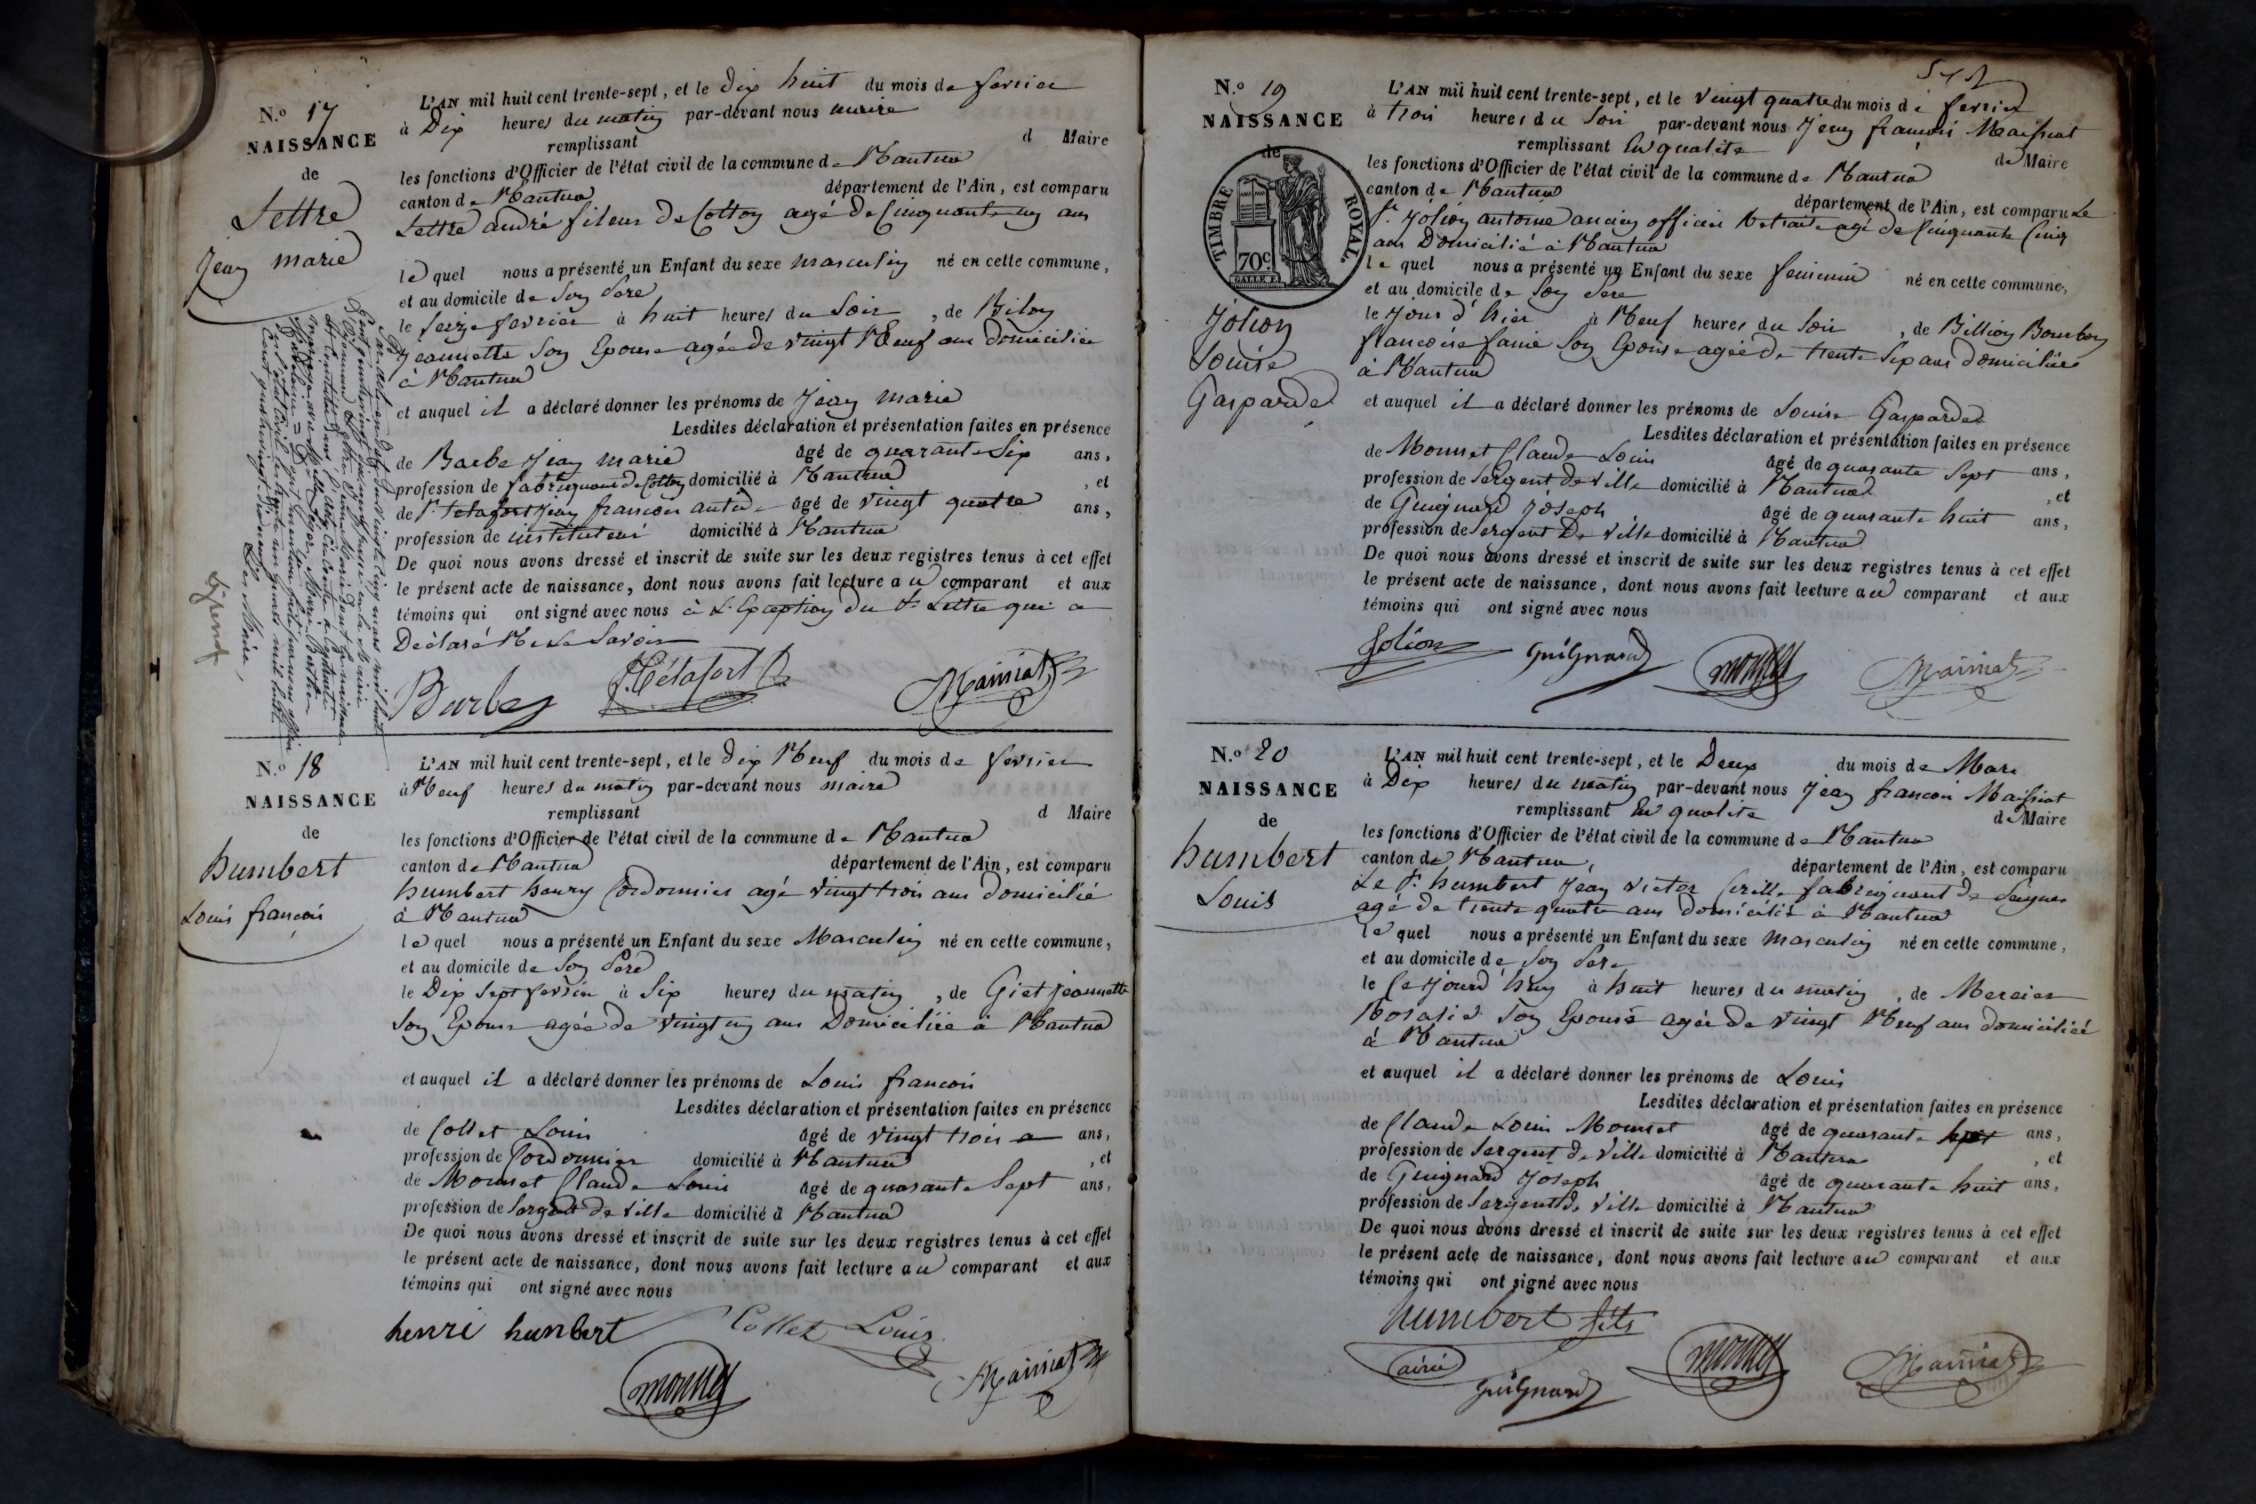 N.o 17
NAISSANCE
de
Lettre
Jean marie
L'AN mil huit cent trente-sept, et le Dix huit du mois de fevrier
à Dix heures du matin par-devant nous maire
remplissant d Maire
les fonctions d'Officier de l'état civil de la commune de Nantua
canton de Nantua département de l'Ain, est comparu
Lettre andré fileur De Cotton agé De Cinquante un ans
le quel nous a présenté un Enfant du sexe masculin né en cette commune,
et au domicile de Son Pere
le seize fevrier à huit heures du Soir, de Billon
Jeannette Son Epouse agée de vingt Neuf ans domiciliée
à Nantua
et auquel il a déclaré donner les prénoms de Jean marie
Lesdites déclaration et présentation faites en présence
de Barbe Jean marie âgé de quarante Six ans,
profession de fabriquant de Cotton domicilié à Nantua, et
de Sr. Tétafort Jean francois âgé de vingt quatre ans,
profession de instituteur domicilié à Nantua
De quoi nous avons dressé et inscrit de suite sur les deux registres tenus à cet effet
le présent acte de naissance, dont nous avons fait lecture au comparant et aux
témoins qui ont signé avec nous à L'Exception du Sr. Lettre qui a
Déclaré Ne le Savoir
Barbe Tétafort Maissiat
Le Maire,
N.o 18
NAISSANCE
de
humbert
Louis françois
L'AN mil huit cent trente-sept, et le Dix Neuf du mois de fevrier
à Neuf heures du matin par-devant nous maire
remplissant d Maire
les fonctions d'Officier de l'état civil de la commune de Nantua
canton de Nantua département de l'Ain, est comparu
humbert henry Cordonnier agé vingt trois ans domicilié
à Nantua
le quel nous a présenté un Enfant du sexe Masculin né en cette commune,
et au domicile de Son Pere
le Dix Sept fevrier à Six heures du matin, de Giet jeannette
Son Epouse agée de vingt un ans Domiciliée à Nantua
et auquel il a déclaré donner les prénoms de Louis francois
Lesdites déclaration et présentation faites en présence
de Collet Louis âgé de vingt trois ans,
profession de Cordonnier domicilié à Nantua, et
de Mounet Claude Louis âgé de quarante Sept ans,
profession de Sergent de ville domicilié à Nantua
De quoi nous avons dressé et inscrit de suite sur les deux registres tenus à cet effet
le présent acte de naissance, dont nous avons fait lecture au comparant et aux
témoins qui ont signé avec nous
henri humbert Collet Louis
mounet Maissiat
N.o 19
NAISSANCE
de
TIMBRE ROYAL
70c
Jolion
Louise
Gasparde
L'AN mil huit cent trente-sept, et le vingt quatre du mois de fevrier
à trois heures du Soir par-devant nous Jean françois Maissiat
remplissant En qualité de Maire
les fonctions d'Officier de l'état civil de la commune de Nantua
canton de Nantua département de l'Ain, est comparu Le
Sr. Jolion antoine ancien officier Retraité agé de Cinquante Cinq
ans Domicilié à Nantua
le quel nous a présenté un Enfant du sexe feminin né en cette commune,
et au domicile de Son Pere
le Jour d'hier à Neuf heures du Soir, de Billion Bourbon
francoise fanie Son Epouse agée de trente Six ans domiciliée
à Nantua
et auquel il a déclaré donner les prénoms de Louise Gasparde
Lesdites déclaration et présentation faites en présence
de Mounet Claude Louis âgé de quarante Sept ans,
profession de Sergent de ville domicilié à Nantua, et
de Guignard Joseph âgé de quarante huit ans,
profession de Sergent De ville domicilié à Nantua
De quoi nous avons dressé et inscrit de suite sur les deux registres tenus à cet effet
le présent acte de naissance, dont nous avons fait lecture au comparant et aux
témoins qui ont signé avec nous
Jolion Guignard mounet Maissiat
N.o 20
NAISSANCE
de
humbert
Louis
L'AN mil huit cent trente-sept, et le Deux du mois de Mars
à Dix heures du matin par-devant nous Jean francois Maissiat
remplissant En qualité de Maire
les fonctions d'Officier de l'état civil de la commune de Nantua
canton de Nantua, département de l'Ain, est comparu
Le Sr. humbert Jean victor Cirille fabriquant de Peignes
agé de trente quatre ans domicilié à Nantua
le quel nous a présenté un Enfant du sexe masculin né en cette commune,
et au domicile de Son Pere
le Ce Jourd'huy à huit heures du matin, de Mercier
Rosalie Son Epouse agée de vingt Neuf ans domiciliée
à Nantua
et auquel il a déclaré donner les prénoms de Louis
Lesdites déclaration et présentation faites en présence
de Claude Louis Mounet âgé de quarante Sept ans,
profession de Sergent de ville domicilié à Nantua, et
de Guignard Joseph âgé de quarante huit ans,
profession de Sergent de ville domicilié à Nantua
De quoi nous avons dressé et inscrit de suite sur les deux registres tenus à cet effet
le présent acte de naissance, dont nous avons fait lecture au comparant et aux
témoins qui ont signé avec nous
humbert fils
ainé Guignard mounet Maissiat